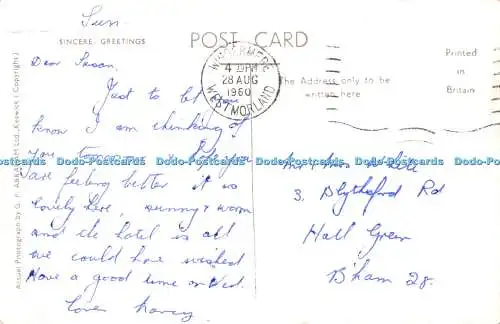 Sun.
SINCERE GREETINGS
POST CARD
Dear Susan.
Just to let you
know I am thinking of
you tomorrow & hope you
are feeling better it is
lovely here, sunny & warm
and the hotel is all
we could have wished
Have a good time on Wed.
Love
WINDERMERE
4 PM
28 AUG
1960
WESTMORLAND
The Address only to be
written here
Printed
in
Britain
Mr & Mrs White
3, Blythsford Rd
Hall Green
B'ham 28.
Actual Photograph by G. P. ABRAHAM Ltd., Keswick (Copyright)
Dodo-Postcards Dodo-Postcards Dodo-Postcards Dodo-Postcards Dodo-Postcards Dodo-Postcards